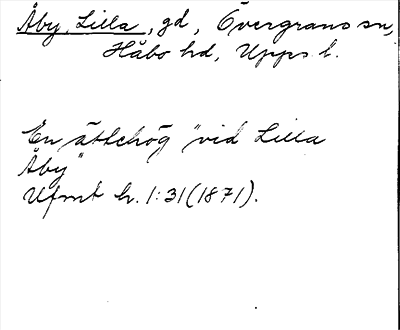 Åby, Lilla, gd, Övergrans sn,
Håbo hd, Upps. l.
En ättehög "vid Lilla
Åby"
Ufmt h. 1:31 (1871).